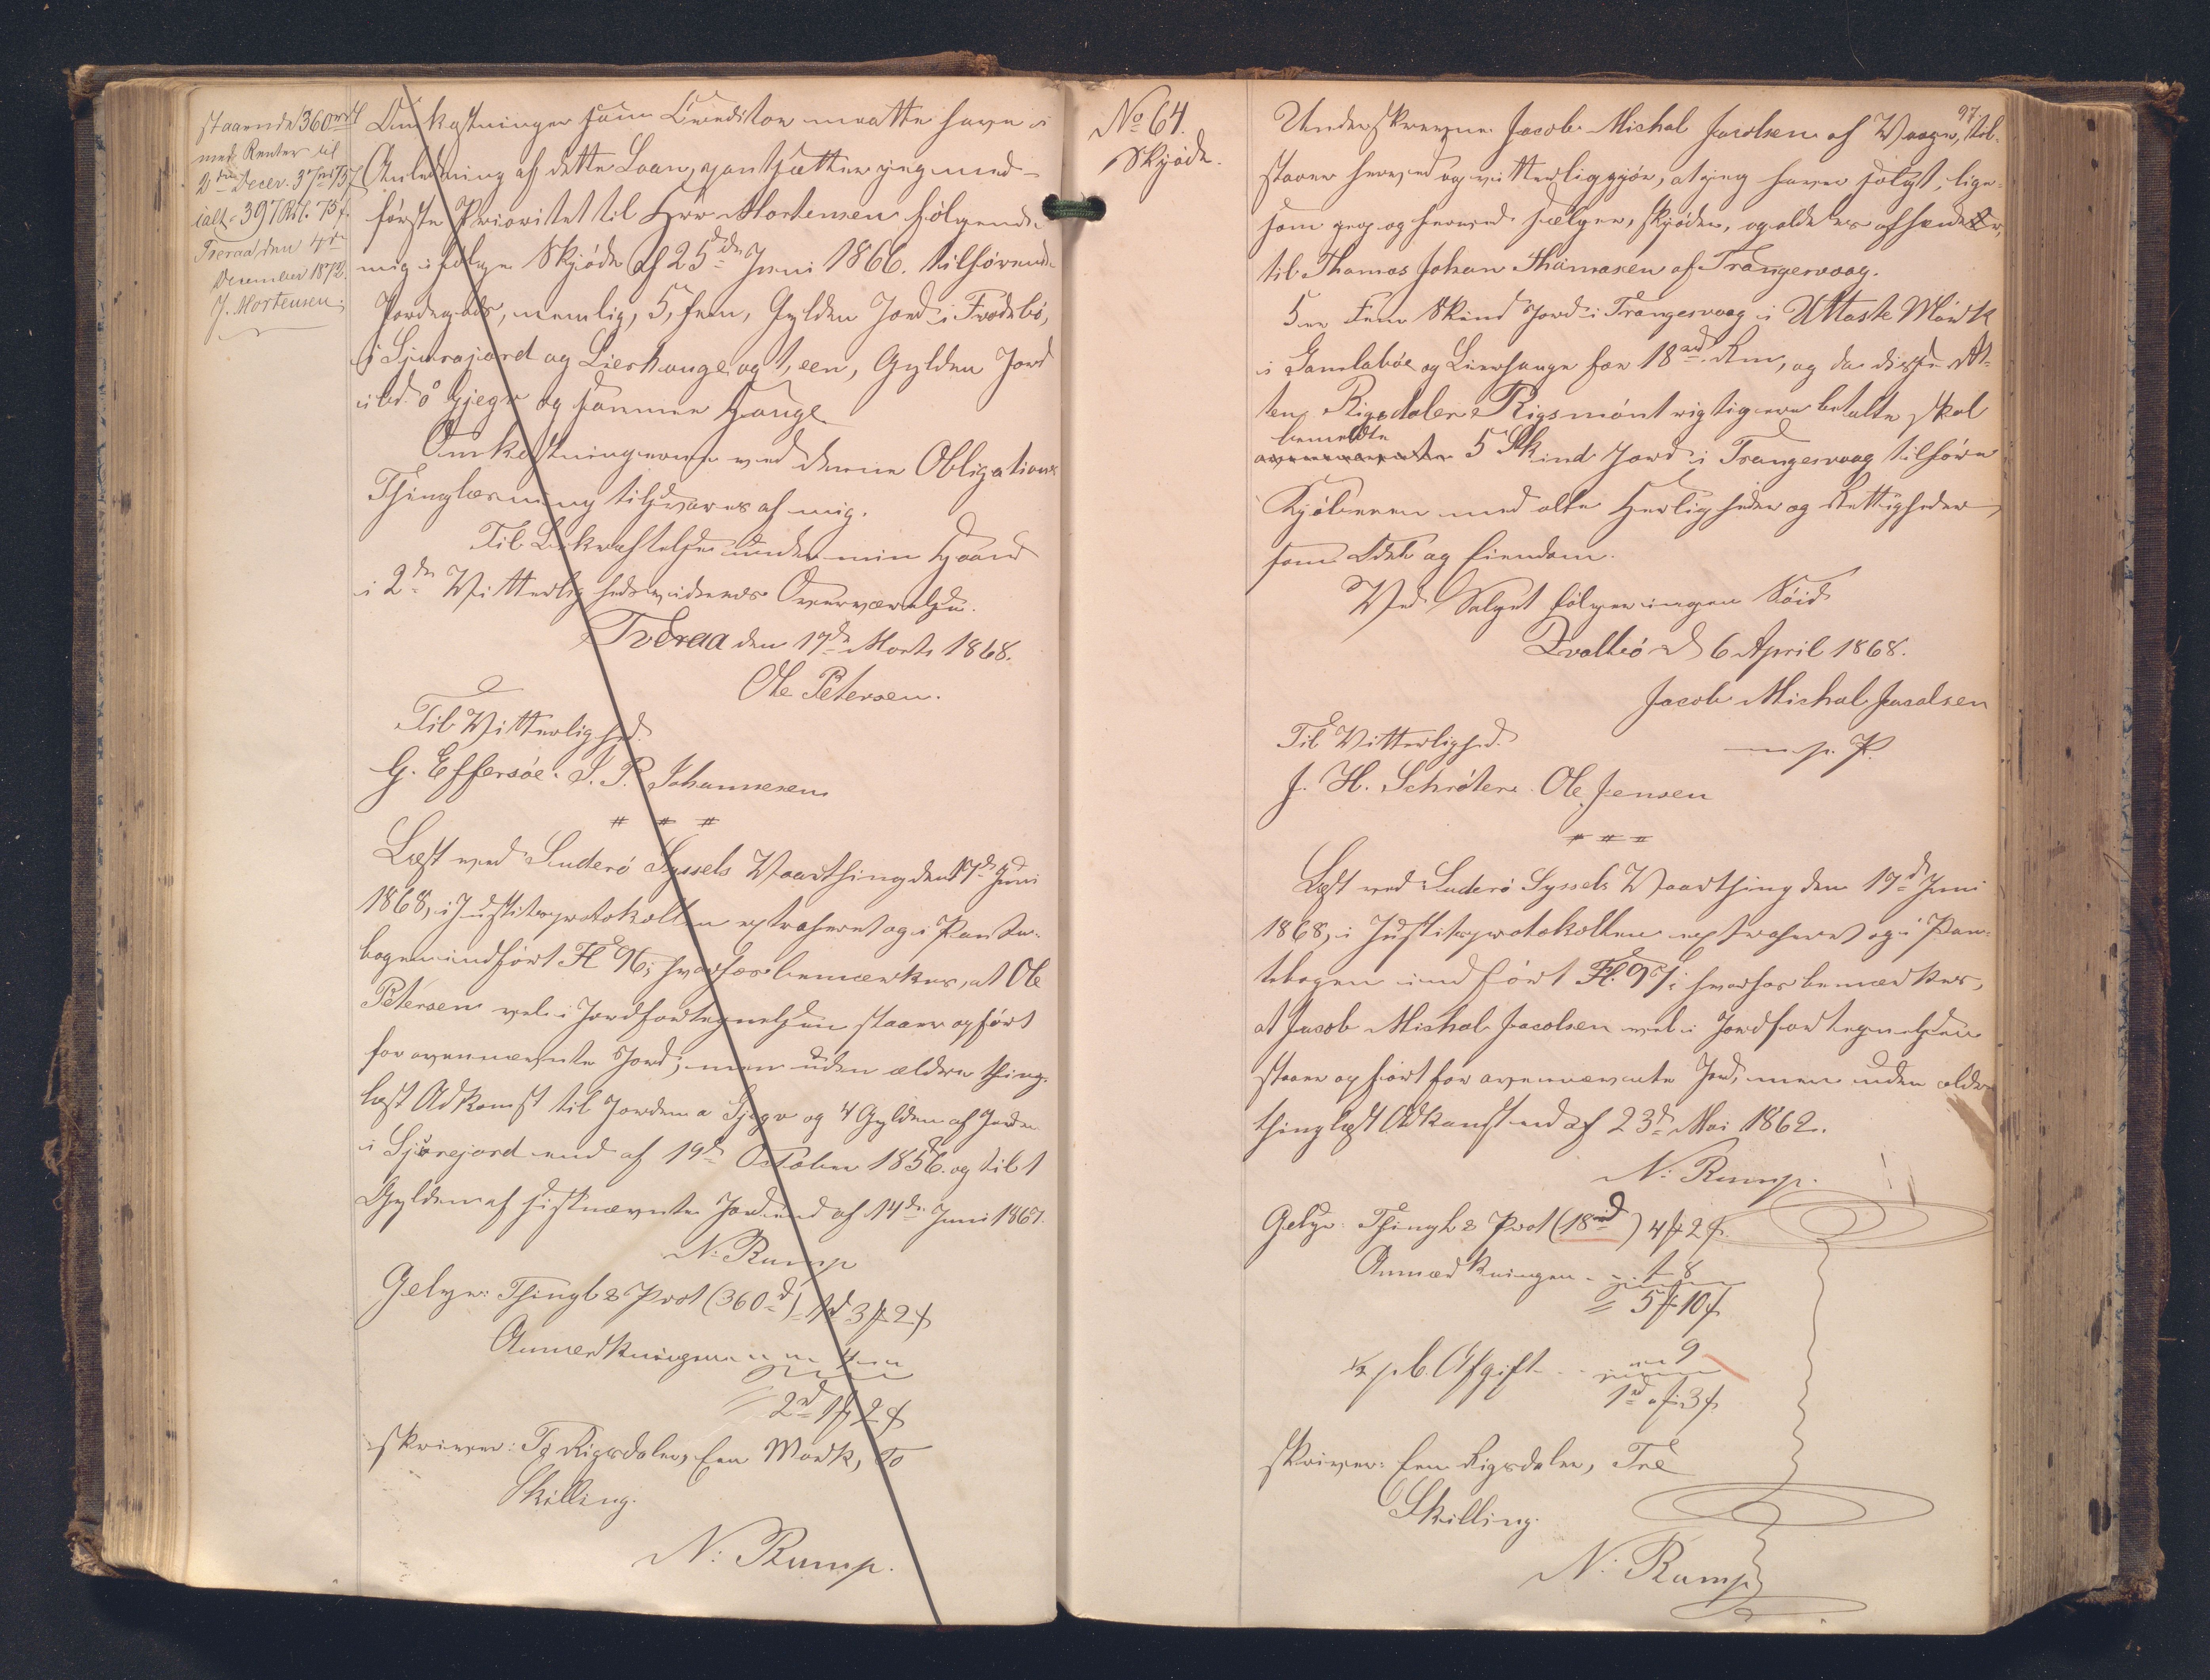 staaende 360 rd
med Renter til
2den Decer. 37rd 75f
ialt = 397 Rd. 75 f.
Tveraa den 4de
December 1872.
J. Mortensen.
Omkostninger som Creditor maatte have i
Anledning af dette Laan, pantsætter jeg med
første Prioritet til Hrr Mortensen følgende
mig i følge Skjøde af 25de Juni 1866. tilhørende
Jordegods, nemlig, 5, fem, Gylden Jord i Frodebø,
i Sjurajord og Lierhauge og 1, een, Gylden Jord
i bd. å Gjegv og samme Hauge
Omkostningerne ved denne Obligations
Thinglæsning tilsvares af mig.
Til Bekræftelse under min Haand
i 2de Vitterlighedsvidners Overværelse.
Tveraa den 17de Marts 1868.
Ole Petersen.
Til Vitterlighed.
G. Effersøe. J. P. Johannesen
# # #
Læst ved Suderø Syssels Vaarthing den 17de Juni
1868, i Justitsprotokollen extraheret og i Pante-
bogen indført Fl 96; hvorhos bemærkes, at Ole
Petersen vel i Jordfortegnelsen staaer opført
for ovennævnte Jord, men uden ældre thing-
læst Adkomst til Jorden a Gjegv og 4 Gylden af Jorden
i Sjurejord end af 19de October 1856. og til 1
Gylden af sidstnævnte Jord end af 14de Juni 1867.
N: Rump
Gebyr: Thingl & Prot (360 rd) 1rd 3 # 2 f
Anmærkningen 4
2rd 1 # 2 f
skriver: To Rigsdaler, Een Mark, To
Skilling.
N: Rump.
97
No 64.
Skjøde.
Underskrevne Jacob Michal Jacobsen af Vaage, til-
staaer herved og vitterliggjør, at jeg haver solgt, lige-
som jeg og herved sælger, skjøder, og aldeles afhænder,
til Thomas Johan Thomasen af Trangesvaag.
5 er Fem Skind Jord i Trangesvaag i Uttaste Mørk
i Gamlabøe og Lierhauge for 18 rd. Rm, og da disse At-
ten Rigsdaler Rigsmønt rigtig ere betalte skal
bemeldte
ovennævnte 5 Skind Jord i Trangesvaag tilhøre
Kjøberen med alle Herligheder og Rettigheder
som Odel og Eiendom.
Ved Salget følger ingen Kóid
Qvalbø d 6 April 1868.
Jacob Michal Jacobsen
m. p. P.
Til Vitterlighed.
J. H. Schrøter. Ole Jensen
# # #
Læst ved Suderø Syssels Vaarthing den 17de Juni
1868, i Justitsprotokollen extraheret og i Pan-
tebogen indført Fl. 97; hvorhos bemærkes,
at Jacob Michal Jacobsen vel i Jordfortegnelsen
staaer opført for ovennævnte Jord, men uden ældre
thinglæst Adkomst end af 23de Mai 1862.
N: Rump.
Gebyr: Thingl & Prot (18 rd) 4 # 2 f.
Anmærkningen 1 - 8
5 # 10 f
1/2 p.C. Afgift 9
1rd " # 3 f
skriver: Een Rigsdaler, Tre
Skilling.
N: Rump